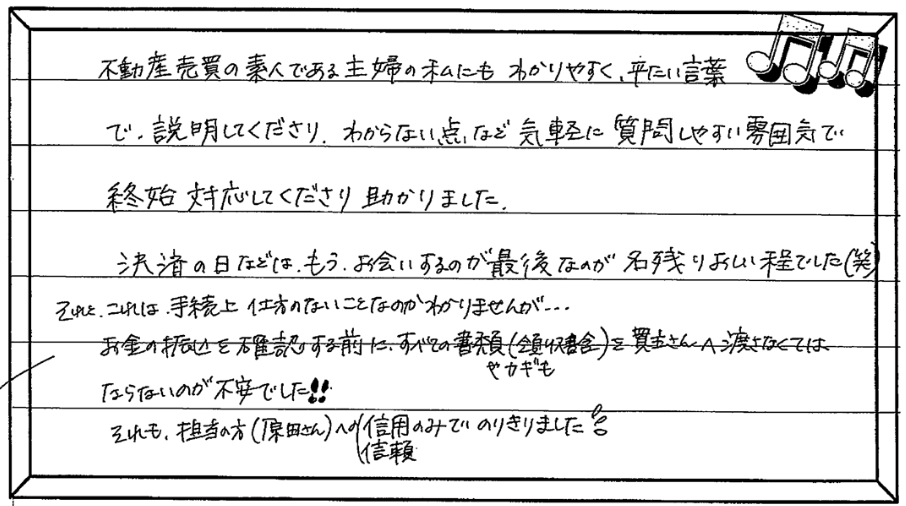 不動産売買の素人である主婦の私にも わかりやすく、平たい言葉
で、説明してくださり、わからない点など気軽に質問しやすい雰囲気で
終始 対応してくださり助かりました。
決済の日などは、もう、お会いするのが最後なのが名残りおしい程でした(笑)
それと、これは、手続上 仕方のないことなのかわかりませんが…
お金の振込を確認する前に、すべての書類(領収書含)を買主さんへ渡さなくては
やカギも
ならないのが不安でした!!
それも、担当の方(原田さん)への信用のみでのりきりました
信頼